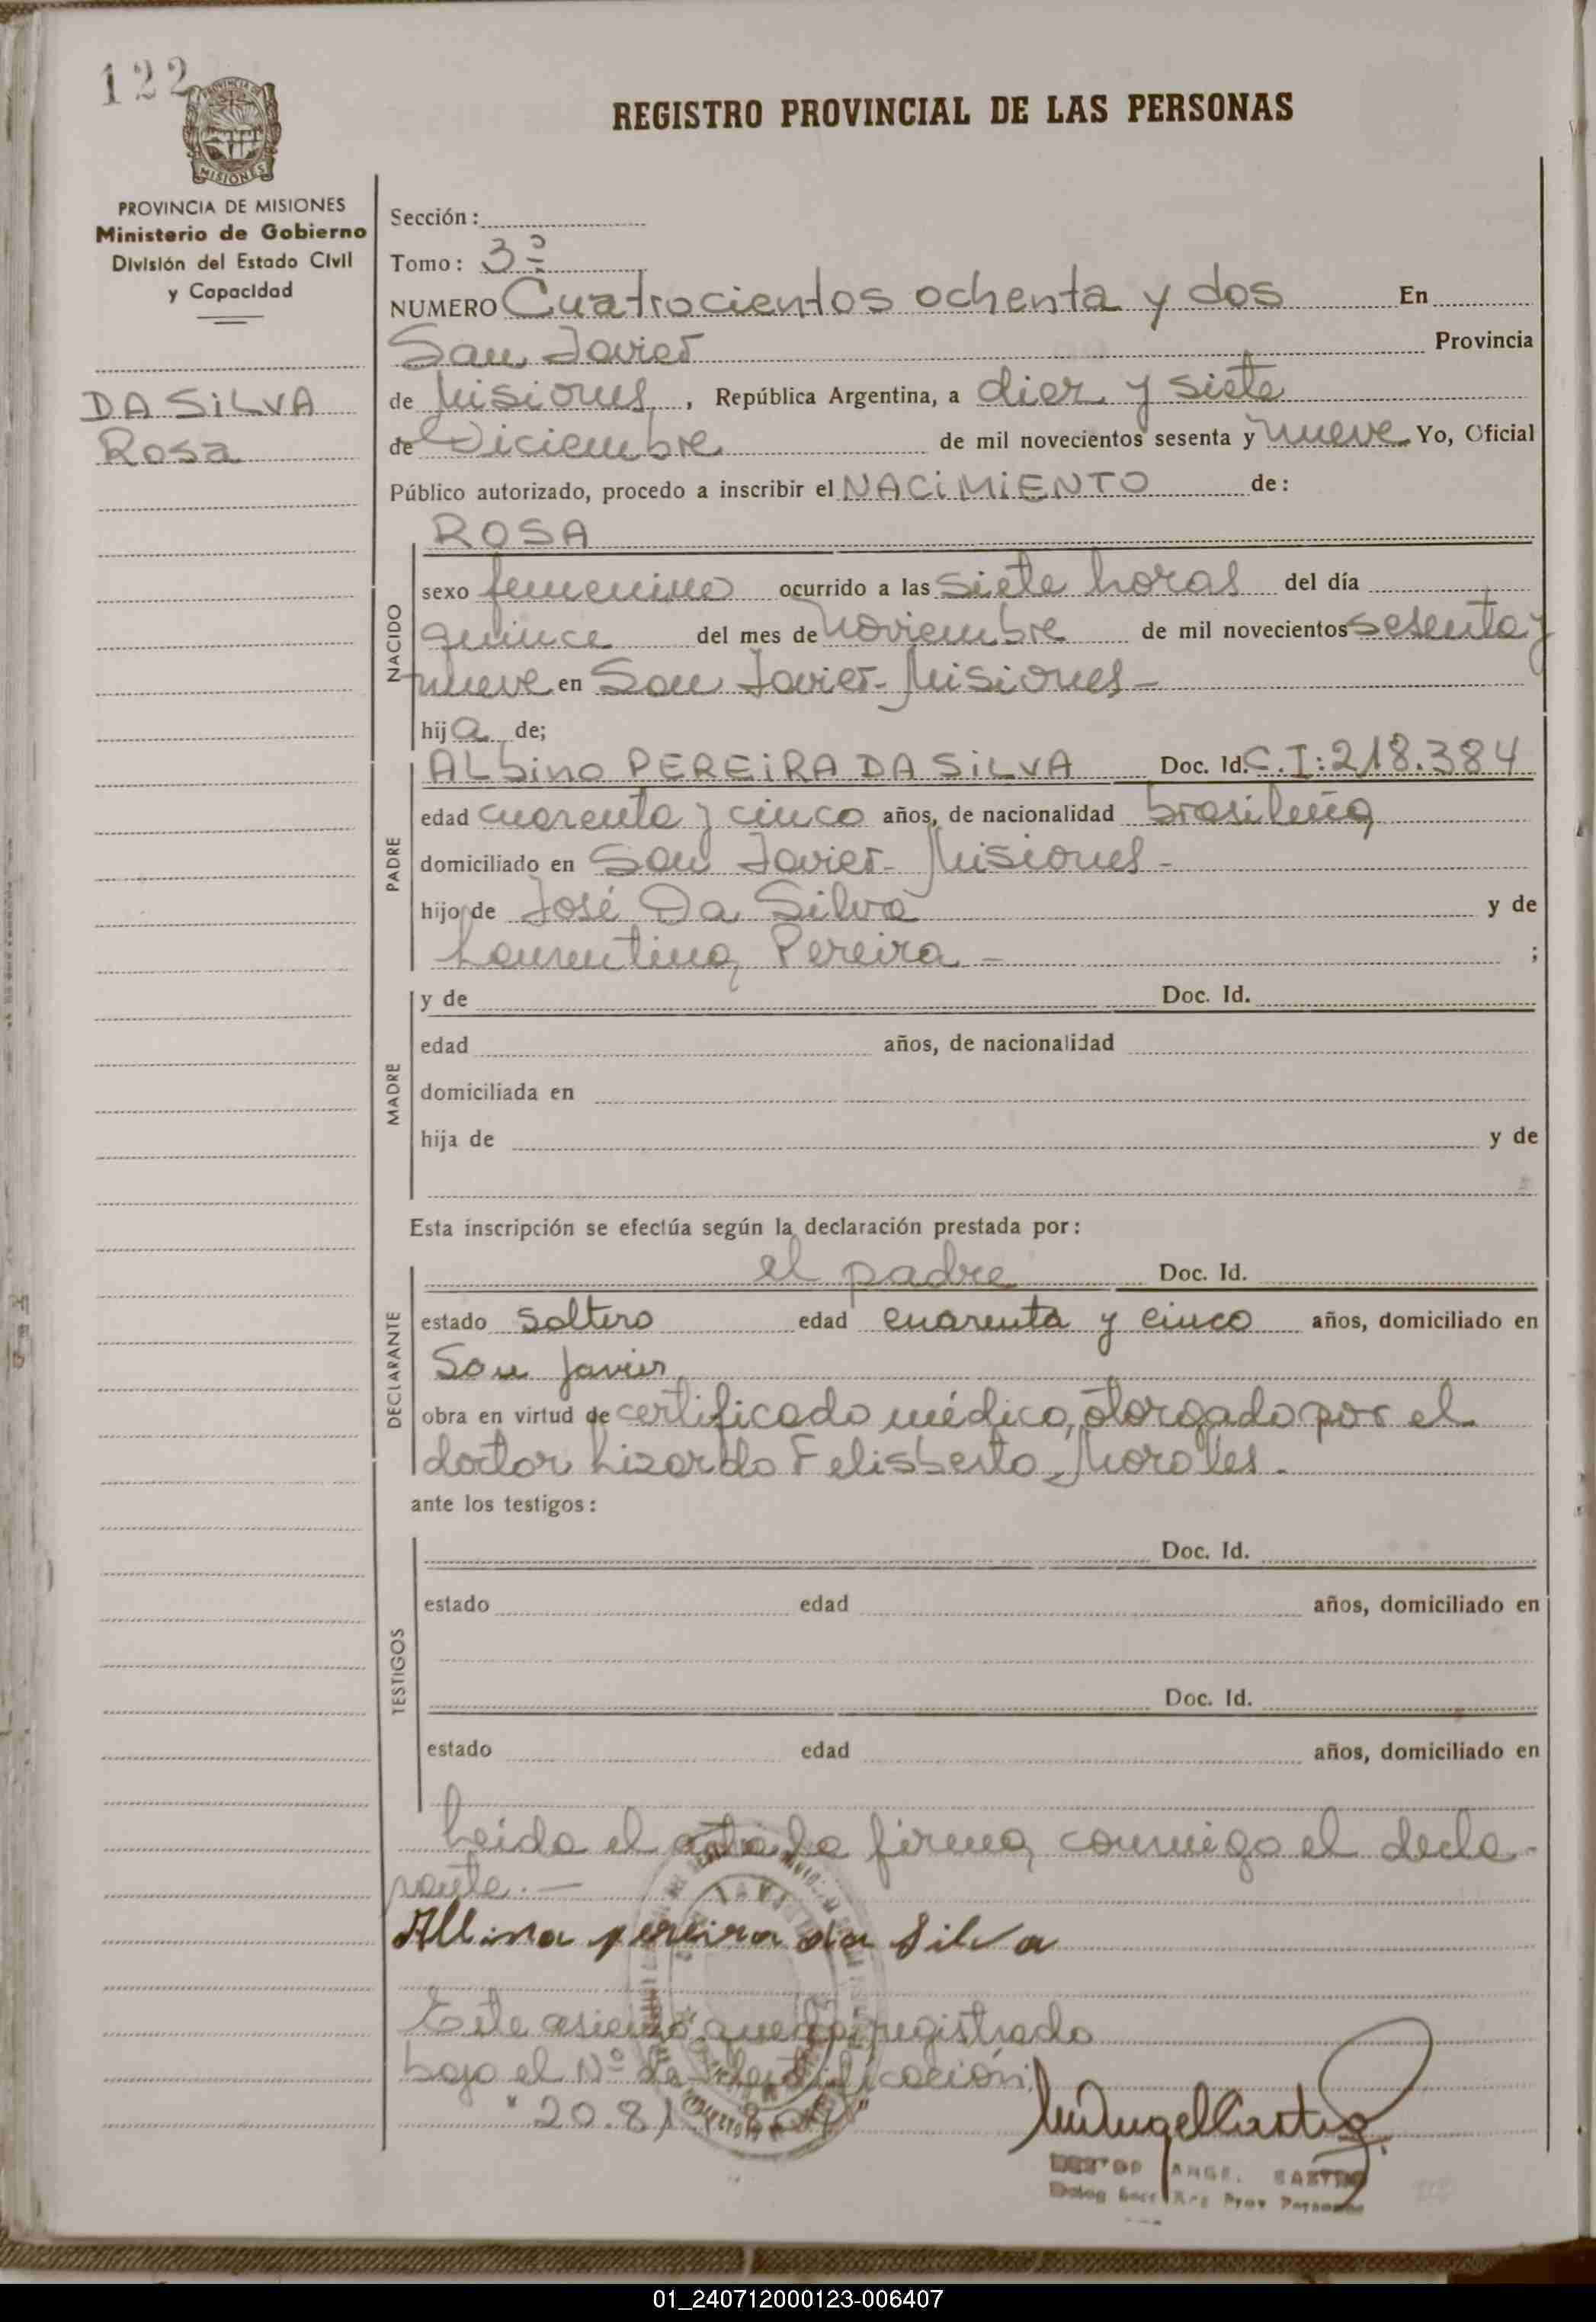 122
REGISTRO PROVINCIAL DE LAS PERSONAS
PROVINCIA DE MISIONES
Ministerio de Gobierno
División del Estado Civil
y Capacidad
DA SiLVA
Rosa
Sección:
Tomo: 3º
NUMERO Cuatrocientos ochenta y dos En
San Javier Provincia
de Misiones, República Argentina, a diez y siete
de Diciembre de mil novecientos sesenta y nueve Yo, Oficial
Público autorizado, procedo a inscribir el NACiMiENTO de:
ROSA
NACIDO
sexo femenino ocurrido a las siete horas del día
quince del mes de Noviembre de mil novecientos sesenta y
nueve en San Javier-Misiones-
hija de;
PADRE
ALbino PEREiRA DA SiLVA Doc. Id. C.I:218.384
edad cuarenta y cinco años, de nacionalidad brasileña
domiciliado en San Javier-Misiones-
hijo de José Da Silva y de
Laurentina Pereira - ;
MADRE
y de Doc. Id.
edad años, de nacionalidad
domiciliada en
hija de y de
Esta inscripción se efectúa según la declaración prestada por:
DECLARANTE
el padre Doc. Id.
estado soltero edad cuarenta y cinco años, domiciliado en
San Javier
obra en virtud de certificado médico, otorgado por el
doctor Lizardo Felisberto Morales.
ante los testigos:
TESTIGOS
Doc. Id.
estado edad años, domiciliado en
Doc. Id.
estado edad años, domiciliado en
Leída el acta la firma conmigo el decla-
rante.-
Albino pereira da Silva
Este asiento queda registrado
bajo el Nº de Identificación:
"20.81
01_240712000123-006407